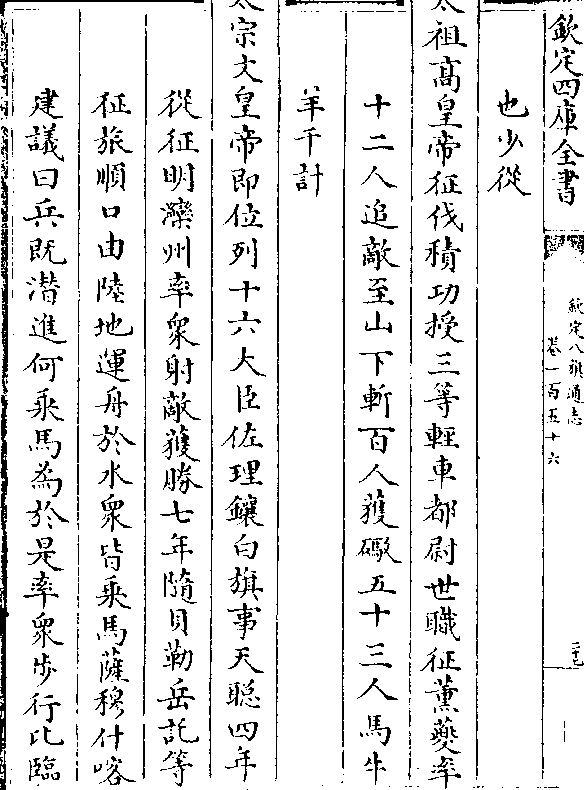 欽定四庫全書
欽定八旗通志
卷一百五十六
二十九
也少從
太祖高皇帝征伐積功授三等輕車都尉世職征薰夔率
十二人追敵至山下斬百人獲礮五十三人馬牛
羊千計
太宗文皇帝即位列十六大臣佐理鑲白旗事天聰四年
從征明灤州率衆射敵獲勝七年隨貝勒岳託等
征旅順口由陸地運舟於水衆皆乘馬薩穆什喀
建議曰兵既潛進何乘馬為於是率衆步行比臨